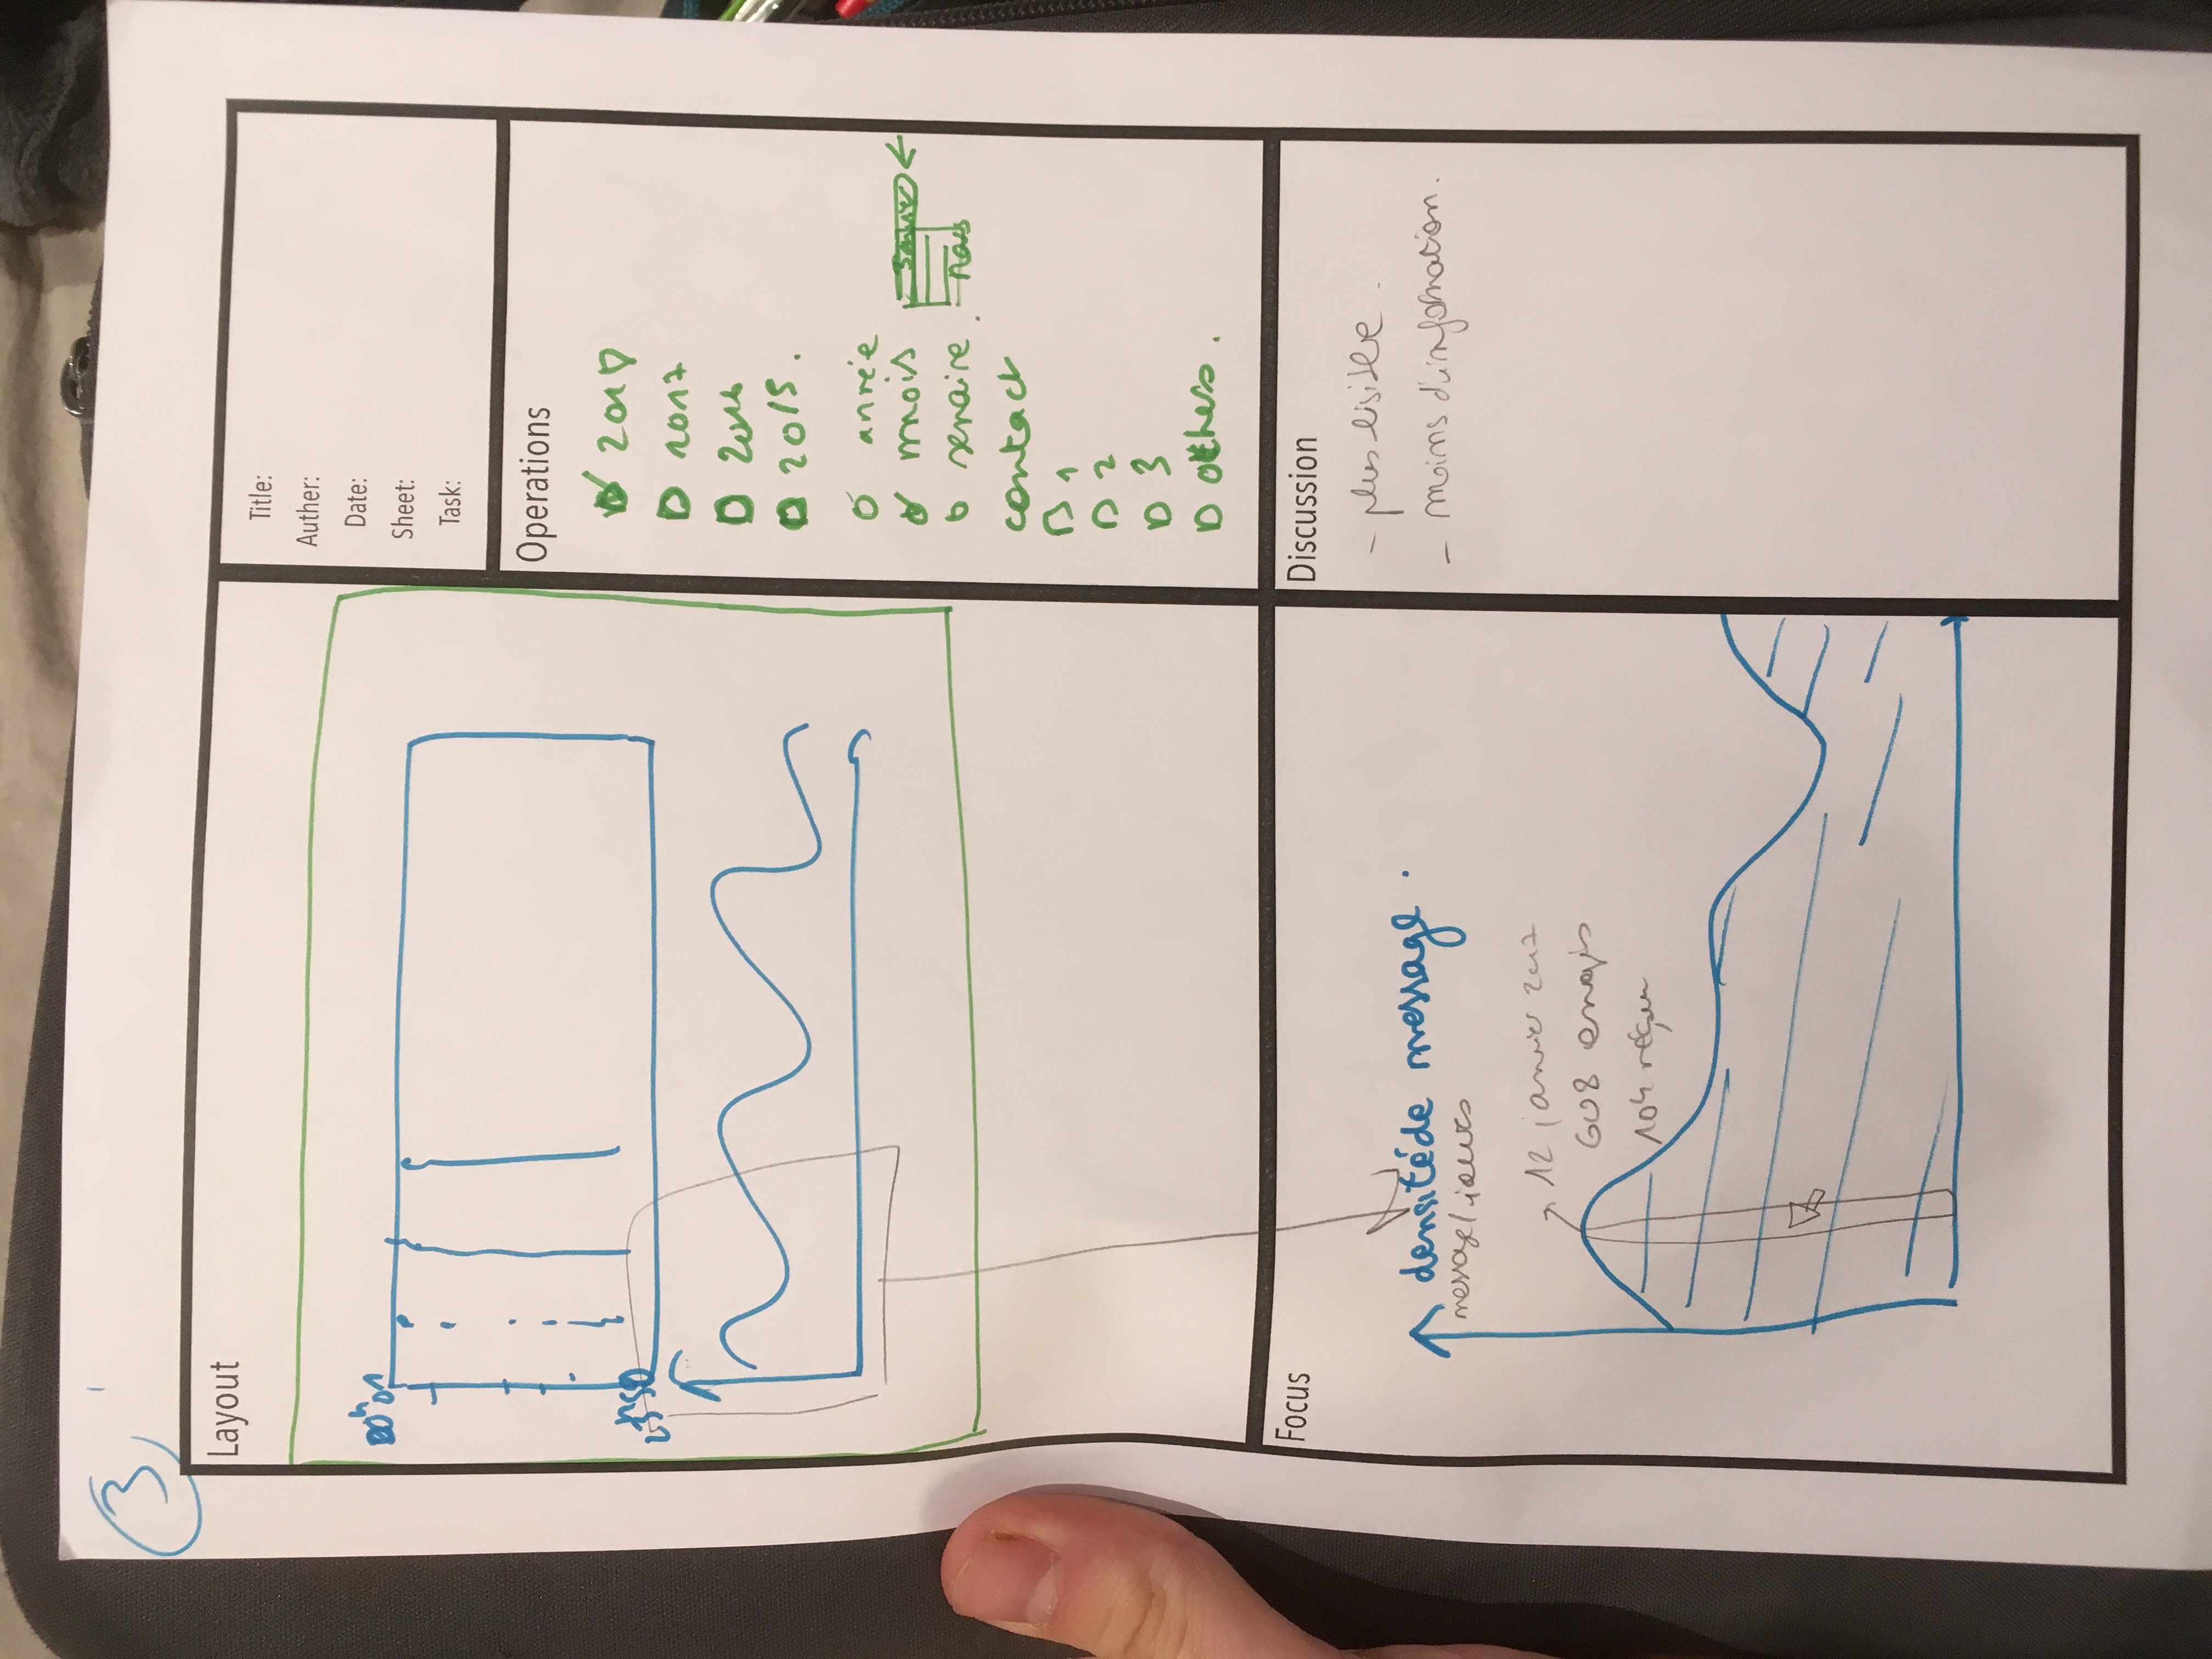 3
Layout
00h01
23h50
Title:
Auther:
Date:
Sheet:
Task:
Operations
2018
2017
2016
2015.
année
mois
semaine.
contact
1
2
3
others.
Focus
densité de message.
message/jours
12 janvier 2017
608 envoyés
104 reçu
Discussion
- plus lisible.
- moins d'information.